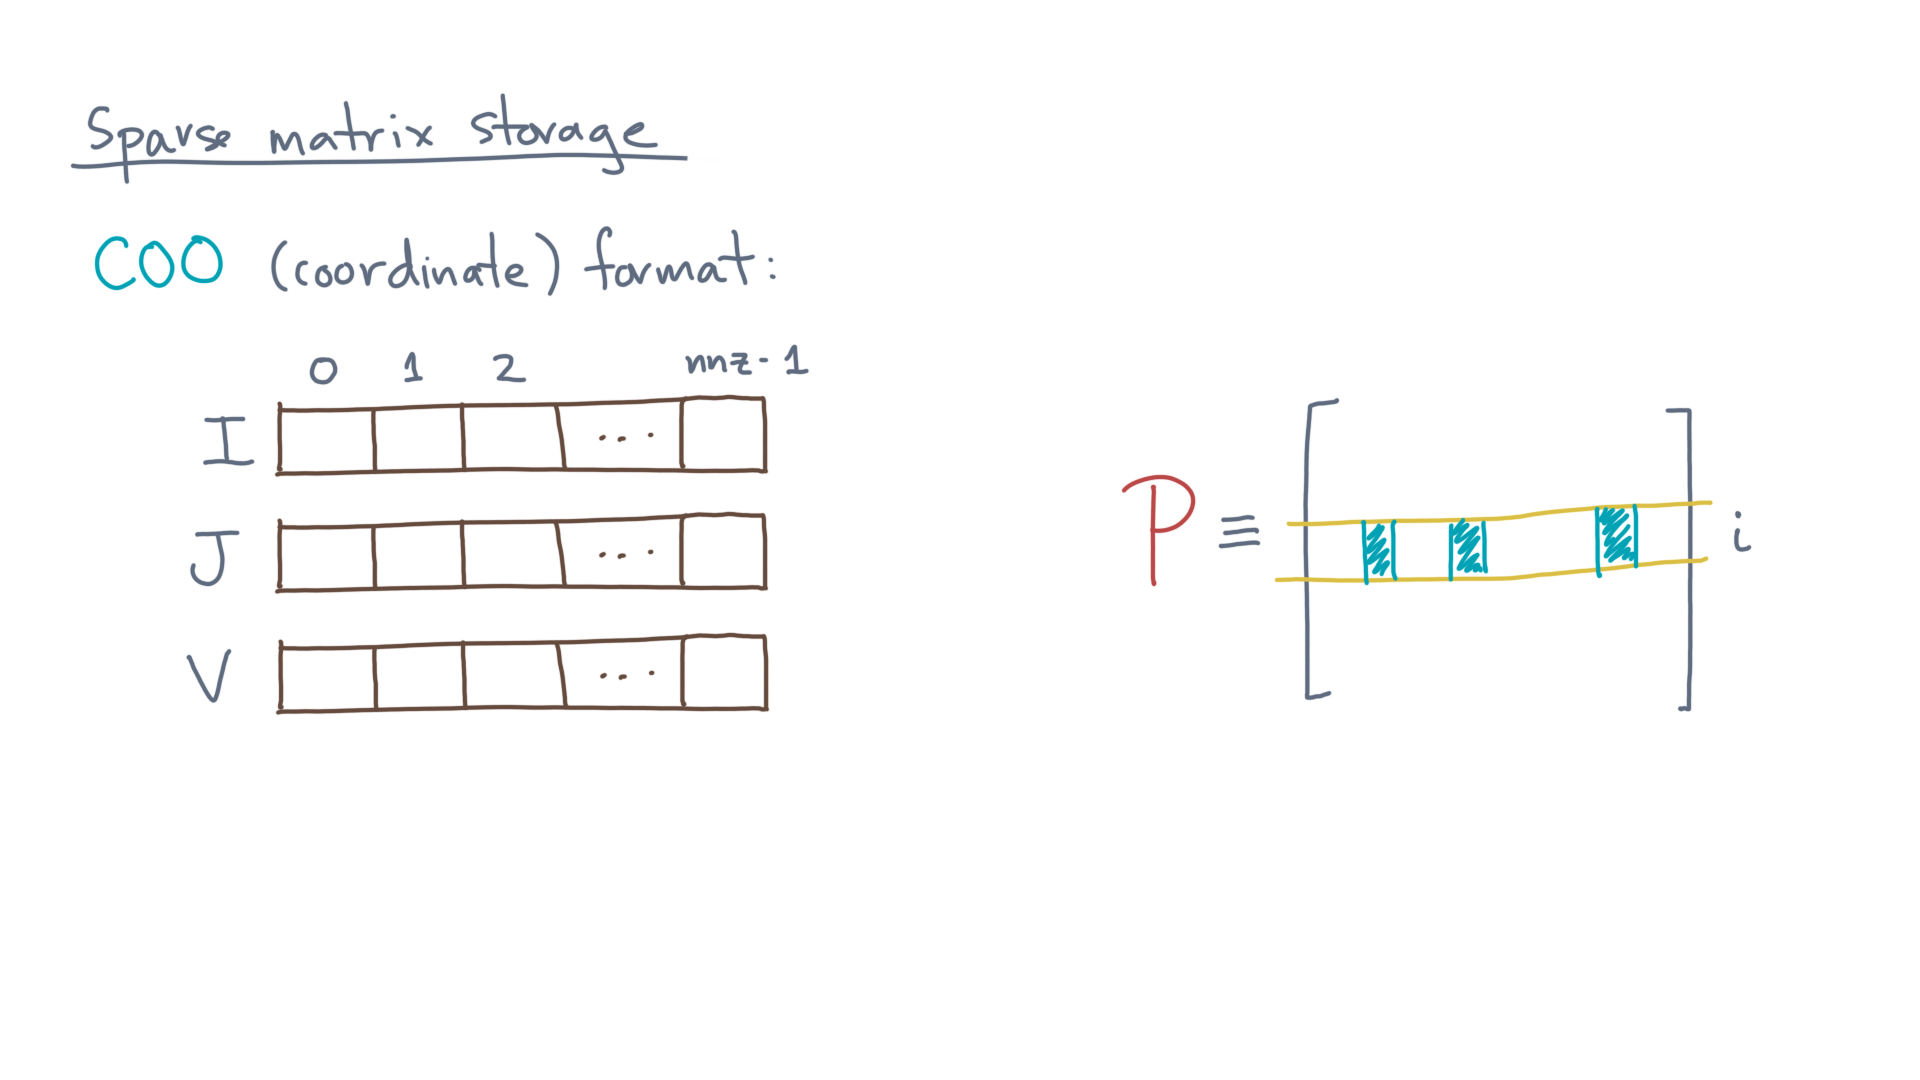 Sparse matrix storage
COO (coordinate) format:
0 1 2 nnz-1
I ...
J ...
V ...
P ≡ [ ] i